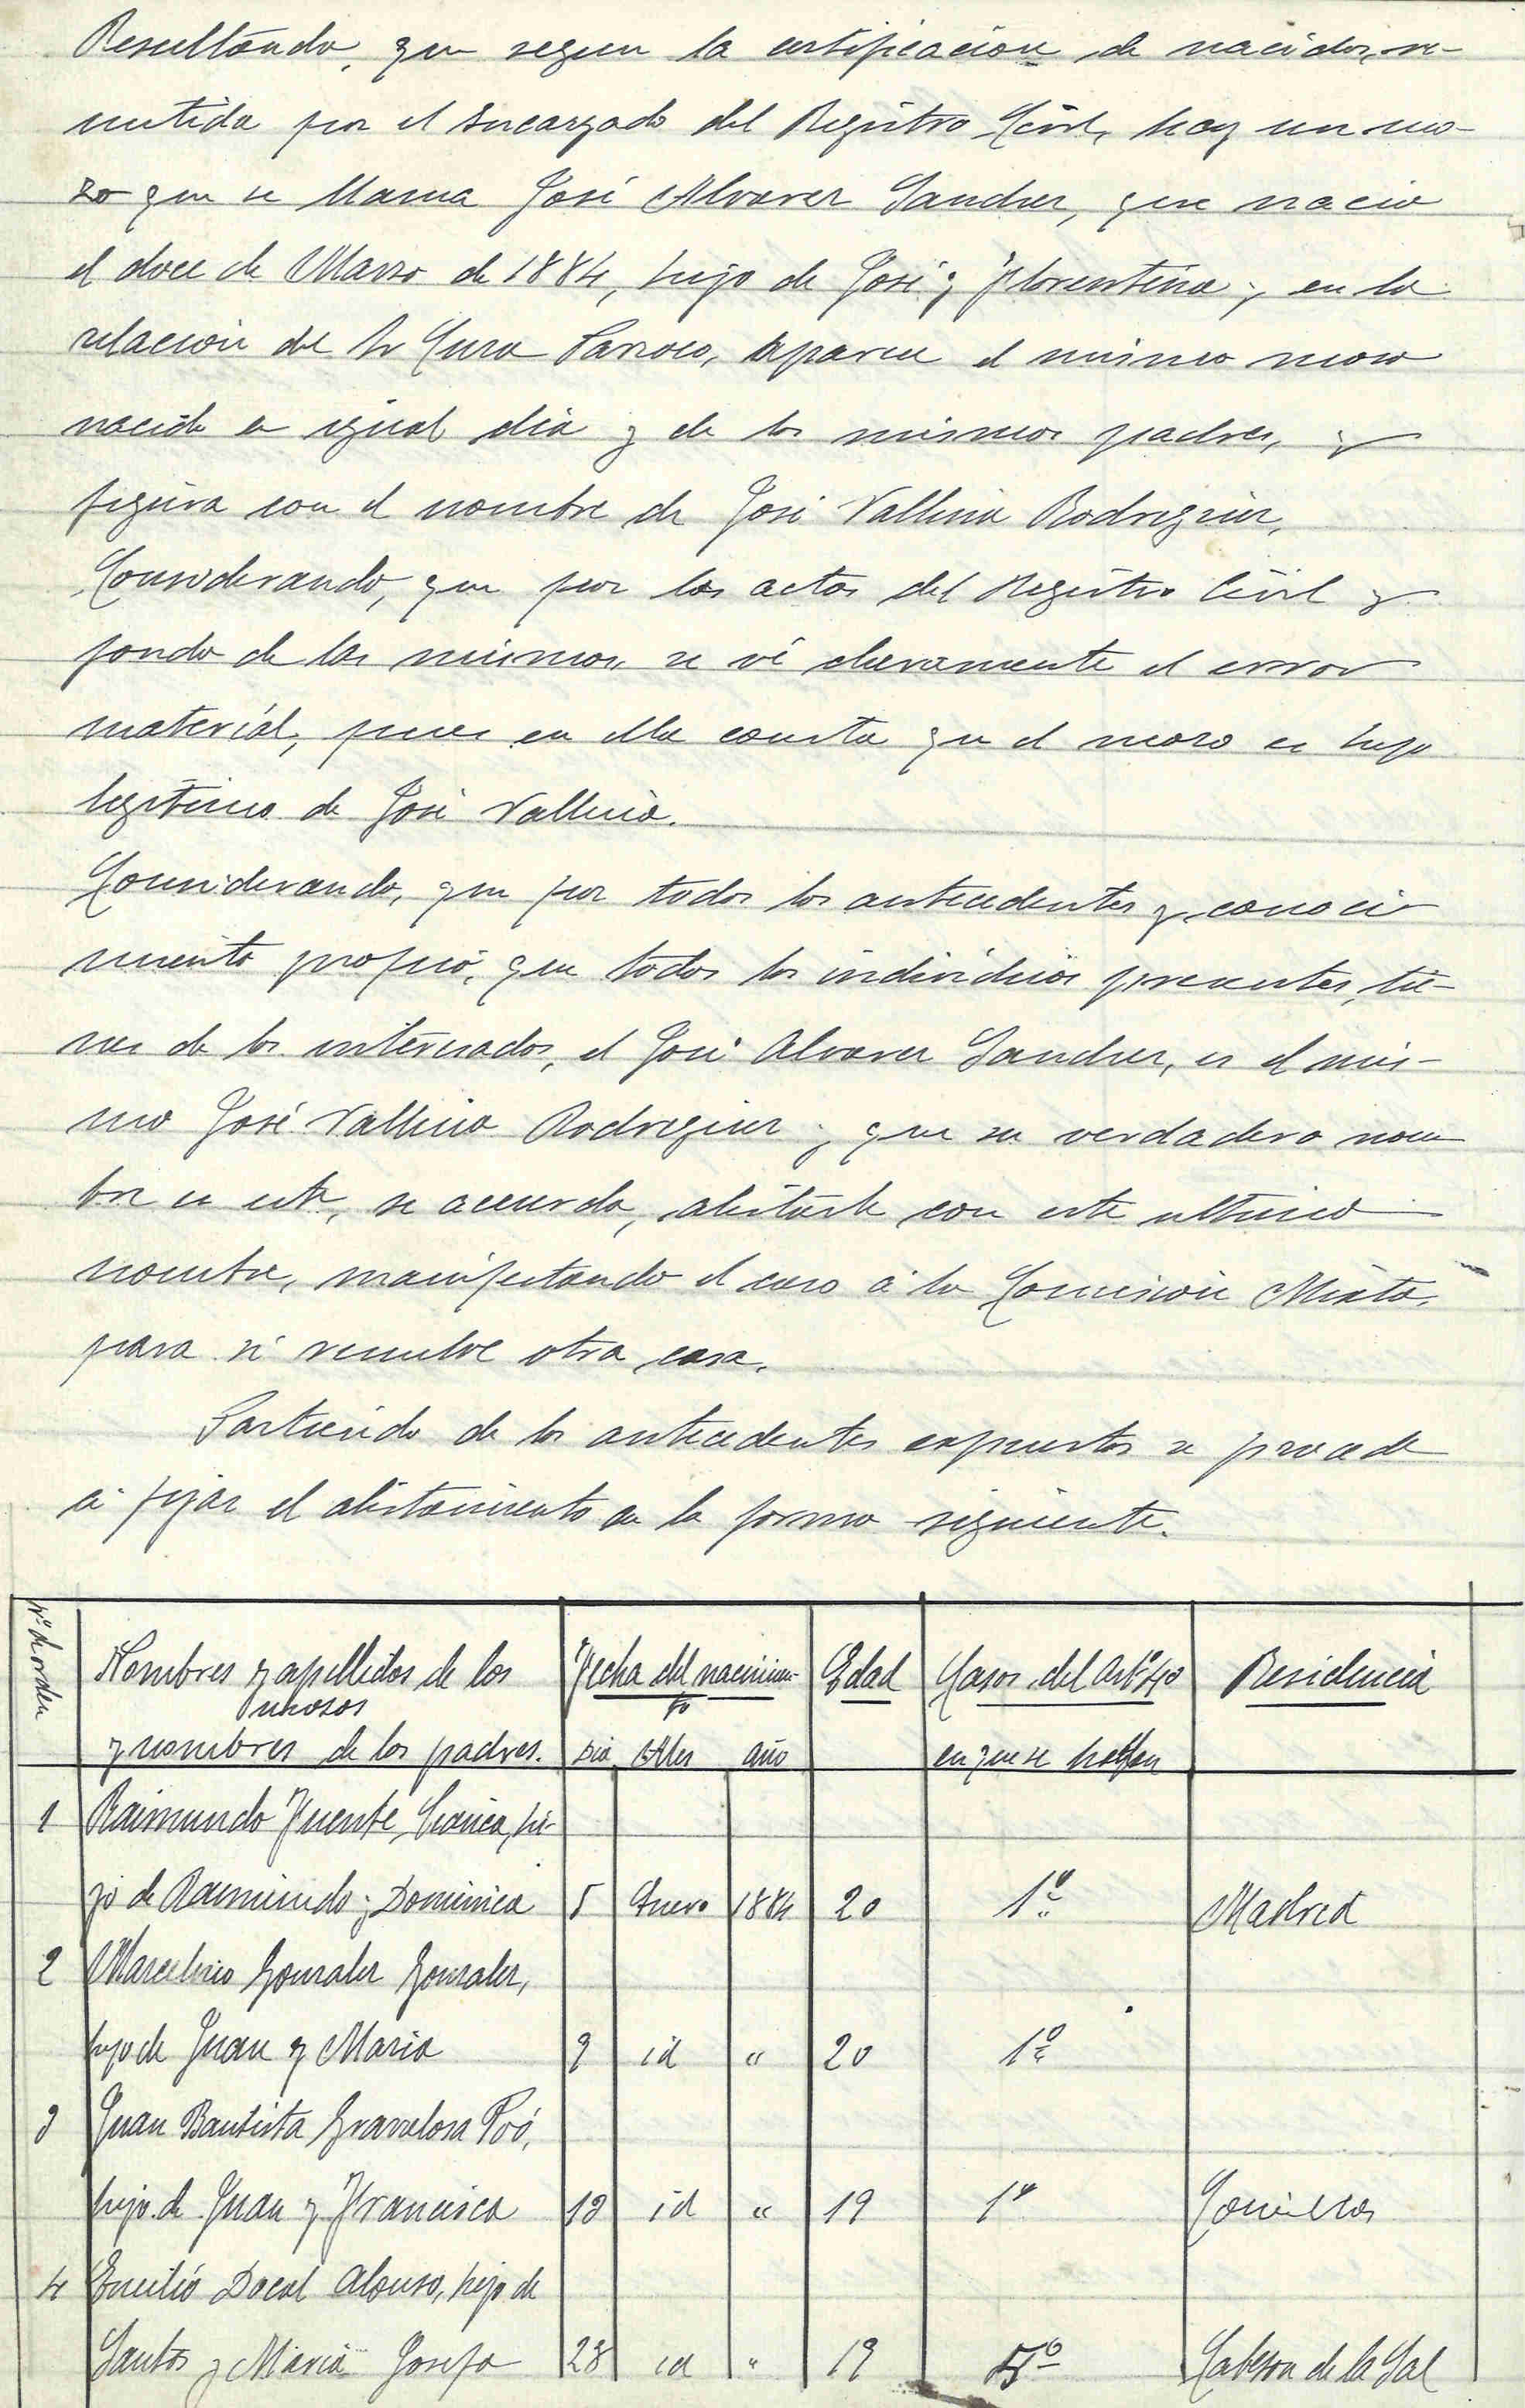 Resultando, que segun la certificación de nacidos, re-
mitida por el Encargado del Registro Civil, hay un mo-
zo que se llama José Alvarez Sanchez, que nació
el doce de Marzo de 1884, hijo de José y Florentina y, en la
relación del Sr Cura Parroco, aparece el mismo mozo
nacido en igual dia y de los mismos padres, y
figura con el nombre de José Vallina Rodriguez,
Considerando, que por las actas del Registro Civil y
fondo de las mismas, se vé claramente el error
material, pues en ella consta que el mozo es hijo
legítimo de José Vallina.
Considerando, que por todos los antecedentes y conoci
miento propio, que todos los individuos presentes, tie-
nen de los interesados, el José Alvarez Sanchez, es el mis-
mo José Vallina Rodriguez y que su verdadero nom
bre es este, se acuerda, alistarle con este ultimo
nombre, manifestando el caso á la Comisión Mixta,
para si resuelve otra cosa.
Partiendo de los antecedentes expuestos se procede
á fijar el alistamiento en la forma siguiente.
Nº de orden
Nombres y apellidos de los mozos
y nombres de los padres.
Fecha del nacimien-
to
Dia Mes año
Edad
Casos del Artº 40
en que se hallan
Residencia
1 Raimundo Fuente, hi-
jo de Raimundo y Dominica 5 Enero 1884 20 1º Madrid
2 Marcelino Gonzalez Gonzalez,
hijo de Juan y Maria 9 id " 20 1º
3 Juan Bautista Gravelosa Poó,
hijo de Juan y Francisca 18 id " 19 1º Comillas
4 Emilio Docal Alonso, hijo de
Santos y Maria Josefa 28 id " 19 5º Cabezon de la Sal